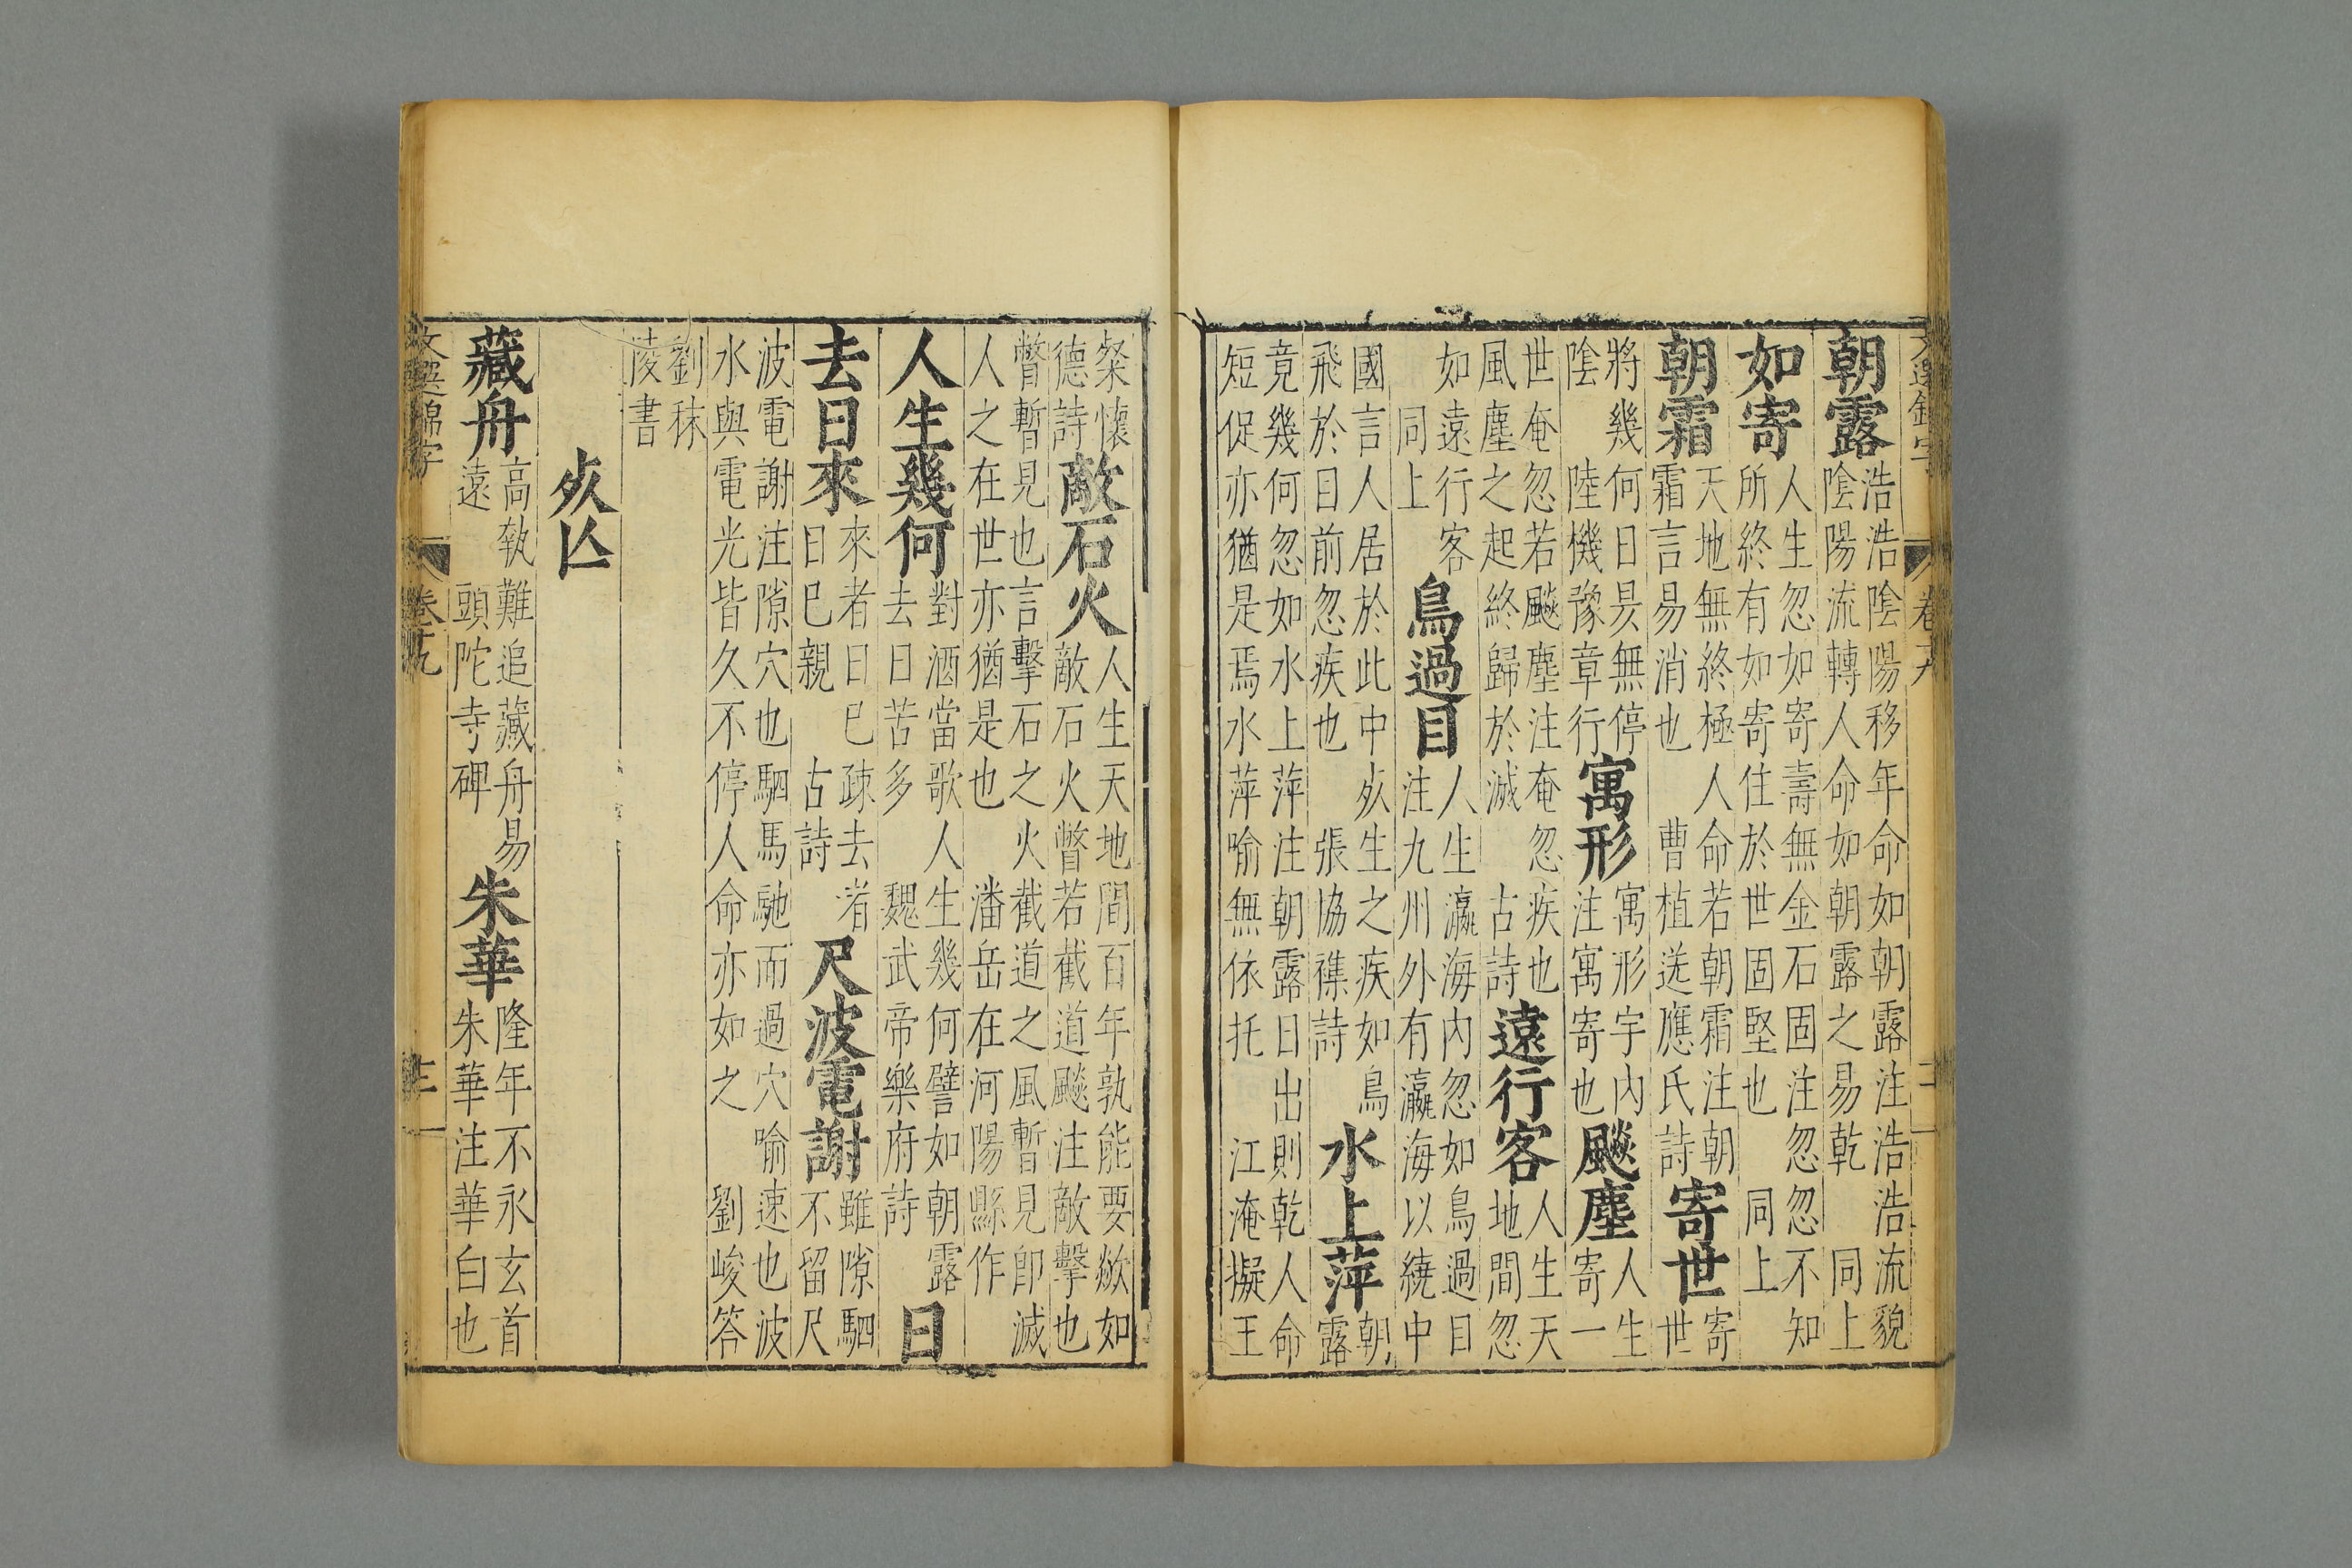 文選錦字 卷十九
朝露
浩浩陰陽移年命如朝露注浩浩流貌
陰陽流轉人命如朝露之易乾 同上
如寄
人生忽如寄壽無金石固注忽忽不知
所終有如寄寄住於世固堅也 同上
朝霜
天地無終極人命若朝霜注朝
霜言易消也 曹植送應氏詩
寄世
寄
世
將幾何日昃無停
陰 陸機豫章行
寓形
寓形宇內
注寓寄也
飈塵
人生
寄一
世奄忽若飈塵注奄忽疾也
風塵之起終歸於滅 古詩
遠行客
人生天
地間忽
如遠行客
同上
鳥過目
人生瀛海內忽如鳥過目
注九州外有瀛海以繞中
國言人居於此中㱙生之疾如鳥
飛於日前忽疾也 張協襍詩
水上萍
朝
露
竟幾何忽如水上萍注朝露日出則乾人命
短促亦猶是焉水萍喻無依托 江淹擬王
粲懷
德詩
敲石火
人生天地間百年孰能要欻如
敲石火瞥若截道飈注敲擊也
瞥暫見也言擊石之火截道之風暫見即滅
人之在世亦猶是也 潘岳在河陽縣作
人生幾何
對酒當歌人生幾何譬如朝露
去日苦多 魏武帝樂府詩
日
去日來
來者日已疎去者
日已親 古詩
尺波電謝
雖隙駟
不留尺
波電謝注隙穴也駟馬馳而過穴喻速也波
水與電光皆久不停人命亦如之 劉峻答
劉秣
陵書
㱙亾
藏舟
高執難追藏舟易
遠 頭陀寺碑
朱華
隆年不永玄首
朱華注華白也
文選錦字 卷十九 十三